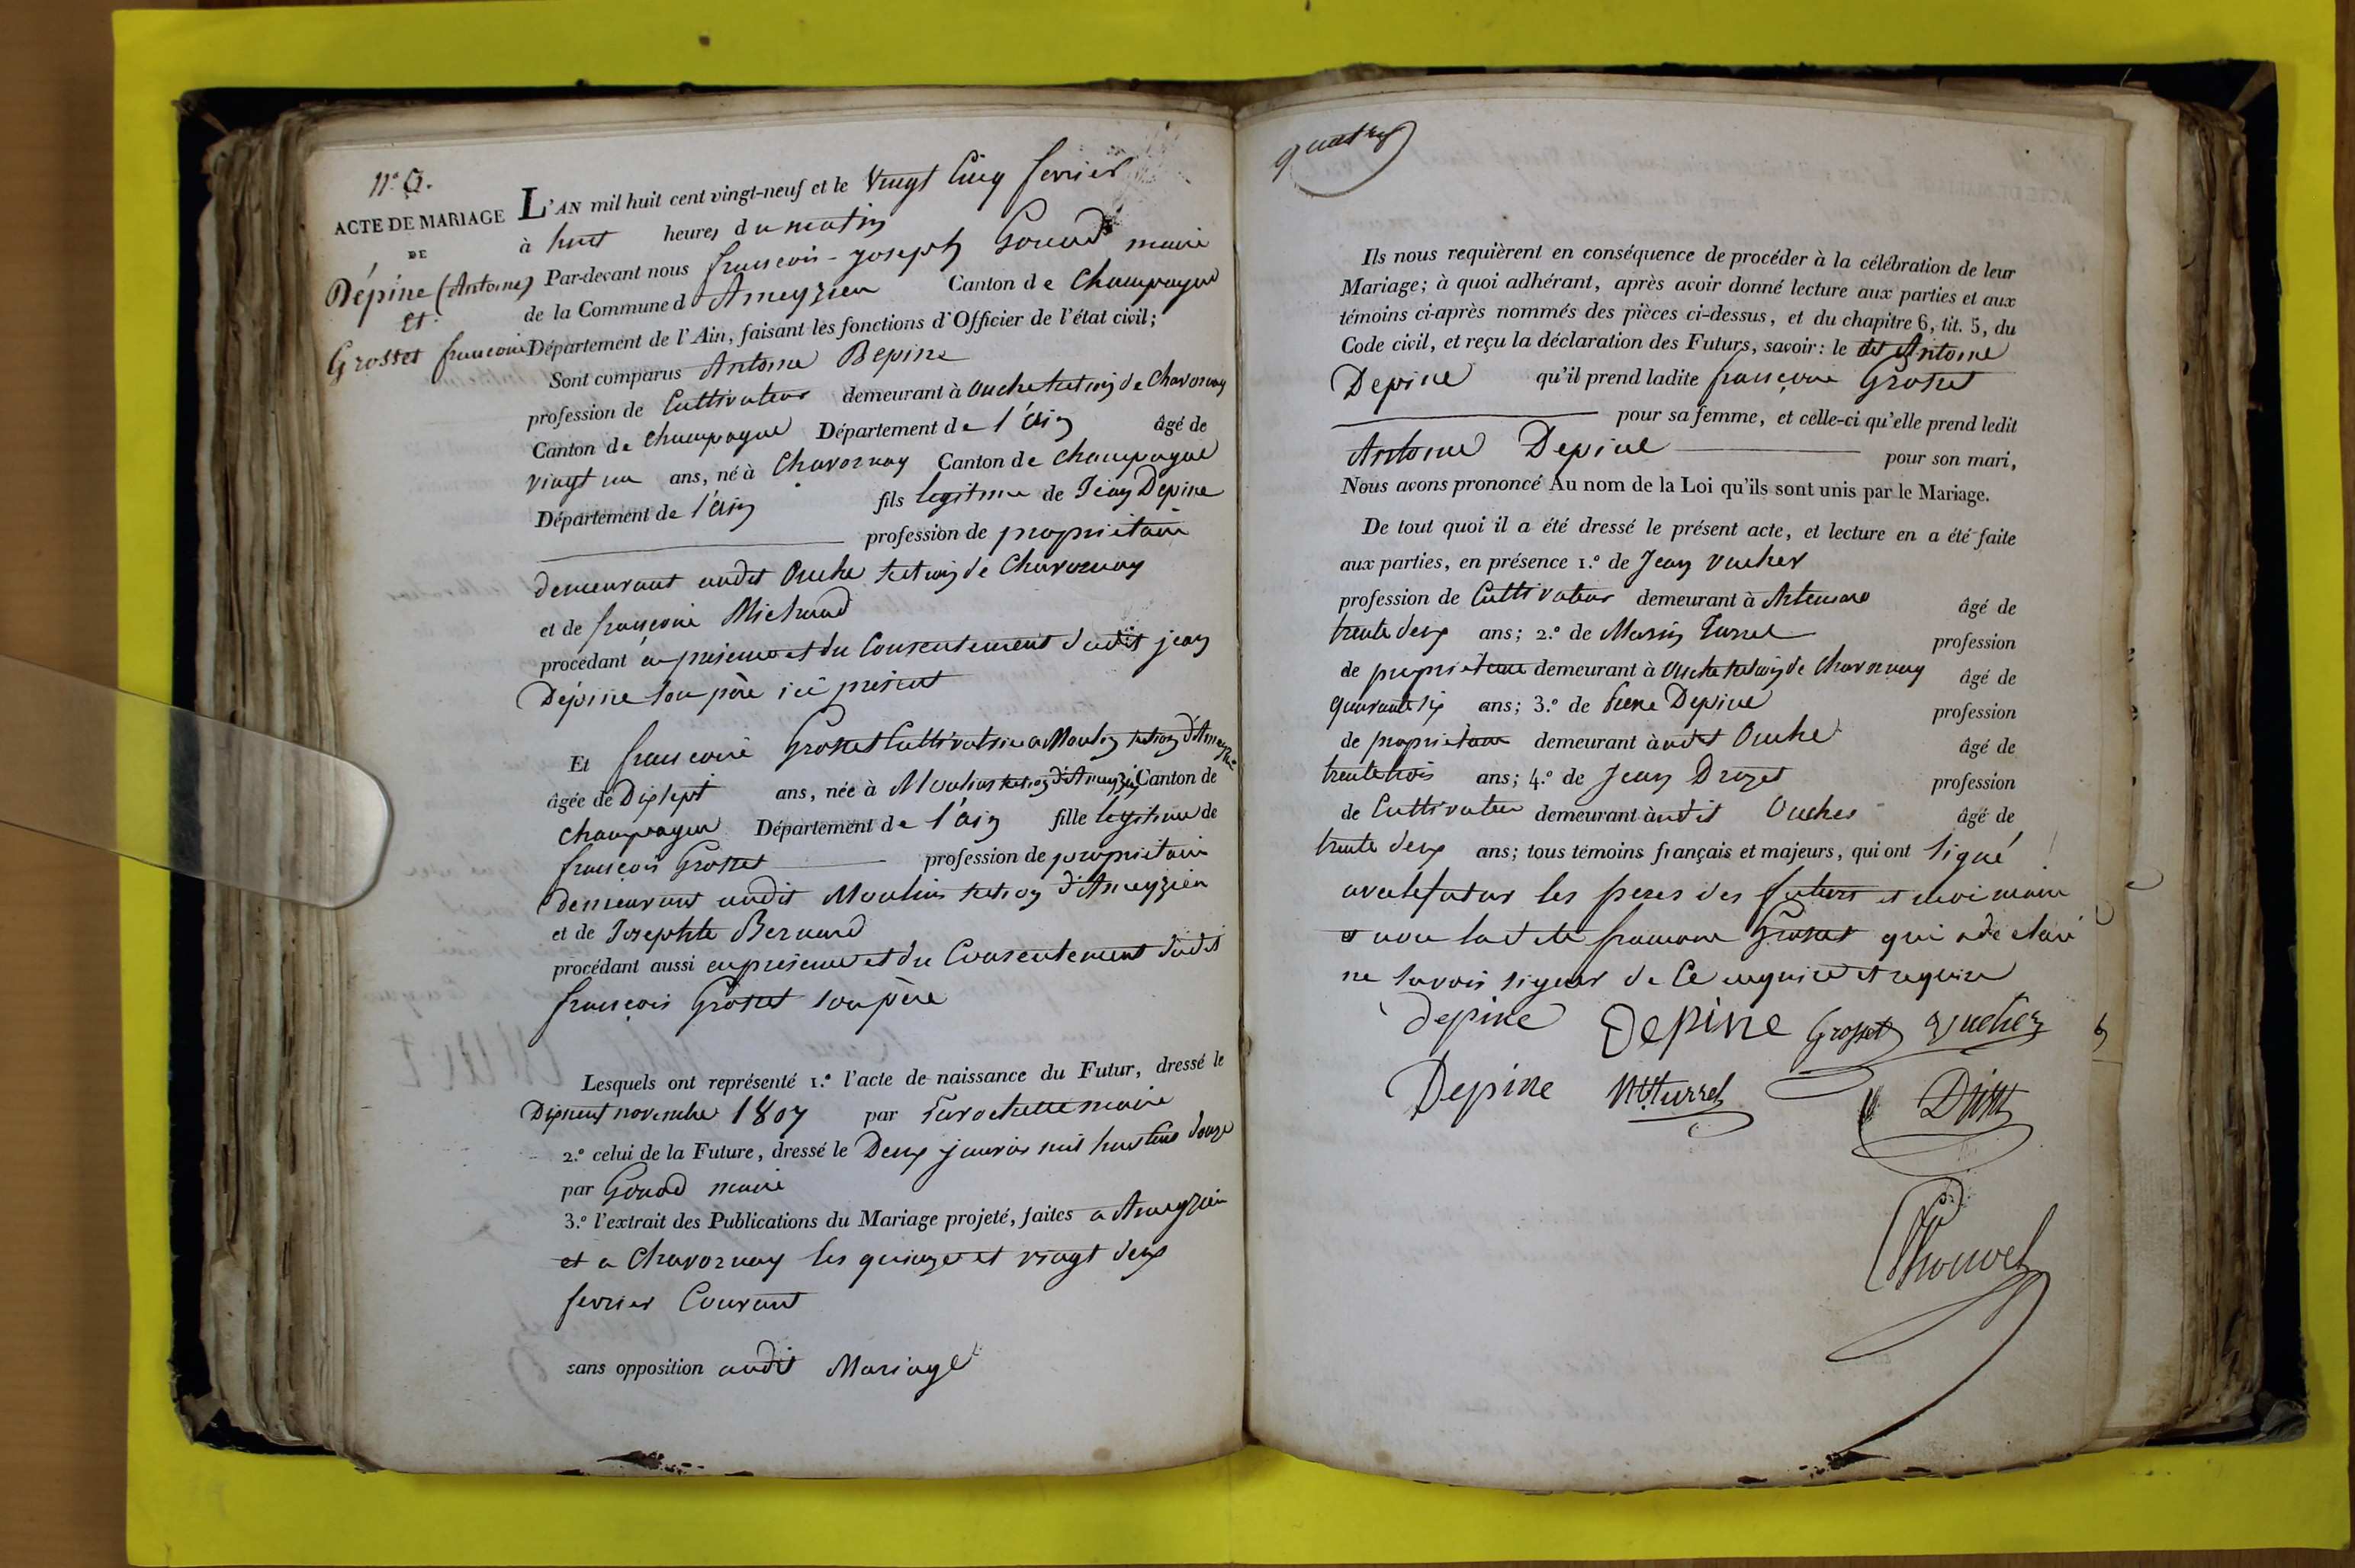 N.° 3.
ACTE DE MARIAGE
DE
Dépine (Antoine)
et
Grosset francoise
L'AN mil huit cent vingt-neuf et le vingt Cinq fevrier
à huit heures du matin
Par-devant nous francois-joseph Gonod maire
de la Commune d'Ameyzieu Canton de Champagne
Département de l'Ain, faisant les fonctions d'Officier de l'état civil;
Sont comparus Antoine Depine
profession de Cultivateur demeurant à Ouche section de Chavornay
Canton de Champagne Département de l'ain âgé de
vingt un ans, né à Chavornay Canton de Champagne
Département de l'ain fils legitime de Jean Depine
profession de propriétaire
demeurant audit Ouche section de Chavornay
et de françoise Michaud
procédant en presence et du Consentement dudit jean
Dépine son père ici présent
Et francoise Grosset Cultivatrice a Moulin section d'Ameyzieu
âgée de Dix sept ans, née à Moulins section d'Ameyzieu Canton de
Champagne Département de l'ain fille legitime de
françois Grosset profession de propriétaire
demeurant audit Moulins section d'Ameyzieu
et de Josephte Bernard
procédant aussi en presence et du Consentement dudit
françois Grosset son père
Lesquels ont représenté 1.° l'acte de naissance du Futur, dressé le
Dix neuf novembre 1807 par maire
2.° celui de la Future, dressé le Deux janvier mil huit cent douze
par Gonod maire
3.° l'extrait des Publications du Mariage projeté, faites a Ameyzieu
et a Chavornay les quinze et vingt deux
fevrier Courant
sans opposition audit Mariage
quatre
Ils nous requièrent en conséquence de procéder à la célébration de leur
Mariage; à quoi adhérant, après avoir donné lecture aux parties et aux
témoins ci-après nommés des pièces ci-dessus, et du chapitre 6, tit. 5, du
Code civil, et reçu la déclaration des Futurs, savoir: le dit Antoine
Depine qu'il prend ladite françoise Grosset
pour sa femme, et celle-ci qu'elle prend ledit
Antoine Depine pour son mari,
Nous avons prononcé Au nom de la Loi qu'ils sont unis par le Mariage.
De tout quoi il a été dressé le présent acte, et lecture en a été faite
aux parties, en présence 1.° de Jean Vucher
profession de Cultivateur demeurant à Artemare âgé de
trente deux ans; 2.° de Marin Turrel profession
de propriétaire demeurant à Ouche section de Chavornay âgé de
quarante six ans; 3.° de Pierre Depine profession
de propriétaire demeurant à audit Ouche âgé de
trente trois ans; 4.° de Jean Druzet profession
de Cultivateur demeurant à audit Ouches âgé de
trente deux ans; tous témoins français et majeurs, qui ont signé
avec le futur les peres des futurs et moi maire
et non ladite francoise Grosset qui a déclaré
ne savoir signer de Ce enquise et requise
depine Depine Grosset Vucher
Depine Mturrel